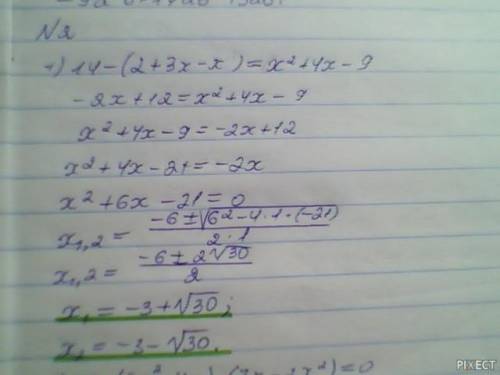 N2
1) 14-(2+3x-x)=x²+4x-9
-2x+12=x²+4x-9
x²+4x-9=-2x+12
x²+4x-21=-2x
x²+6x-21=0
x₁,₂ = (-6±√(6²-4·1·(-21)))/(2·1)
x₁,₂ = (-6±2√30)/2
x₁ = -3+√30;
x₂ = -3-√30.
PIXECT